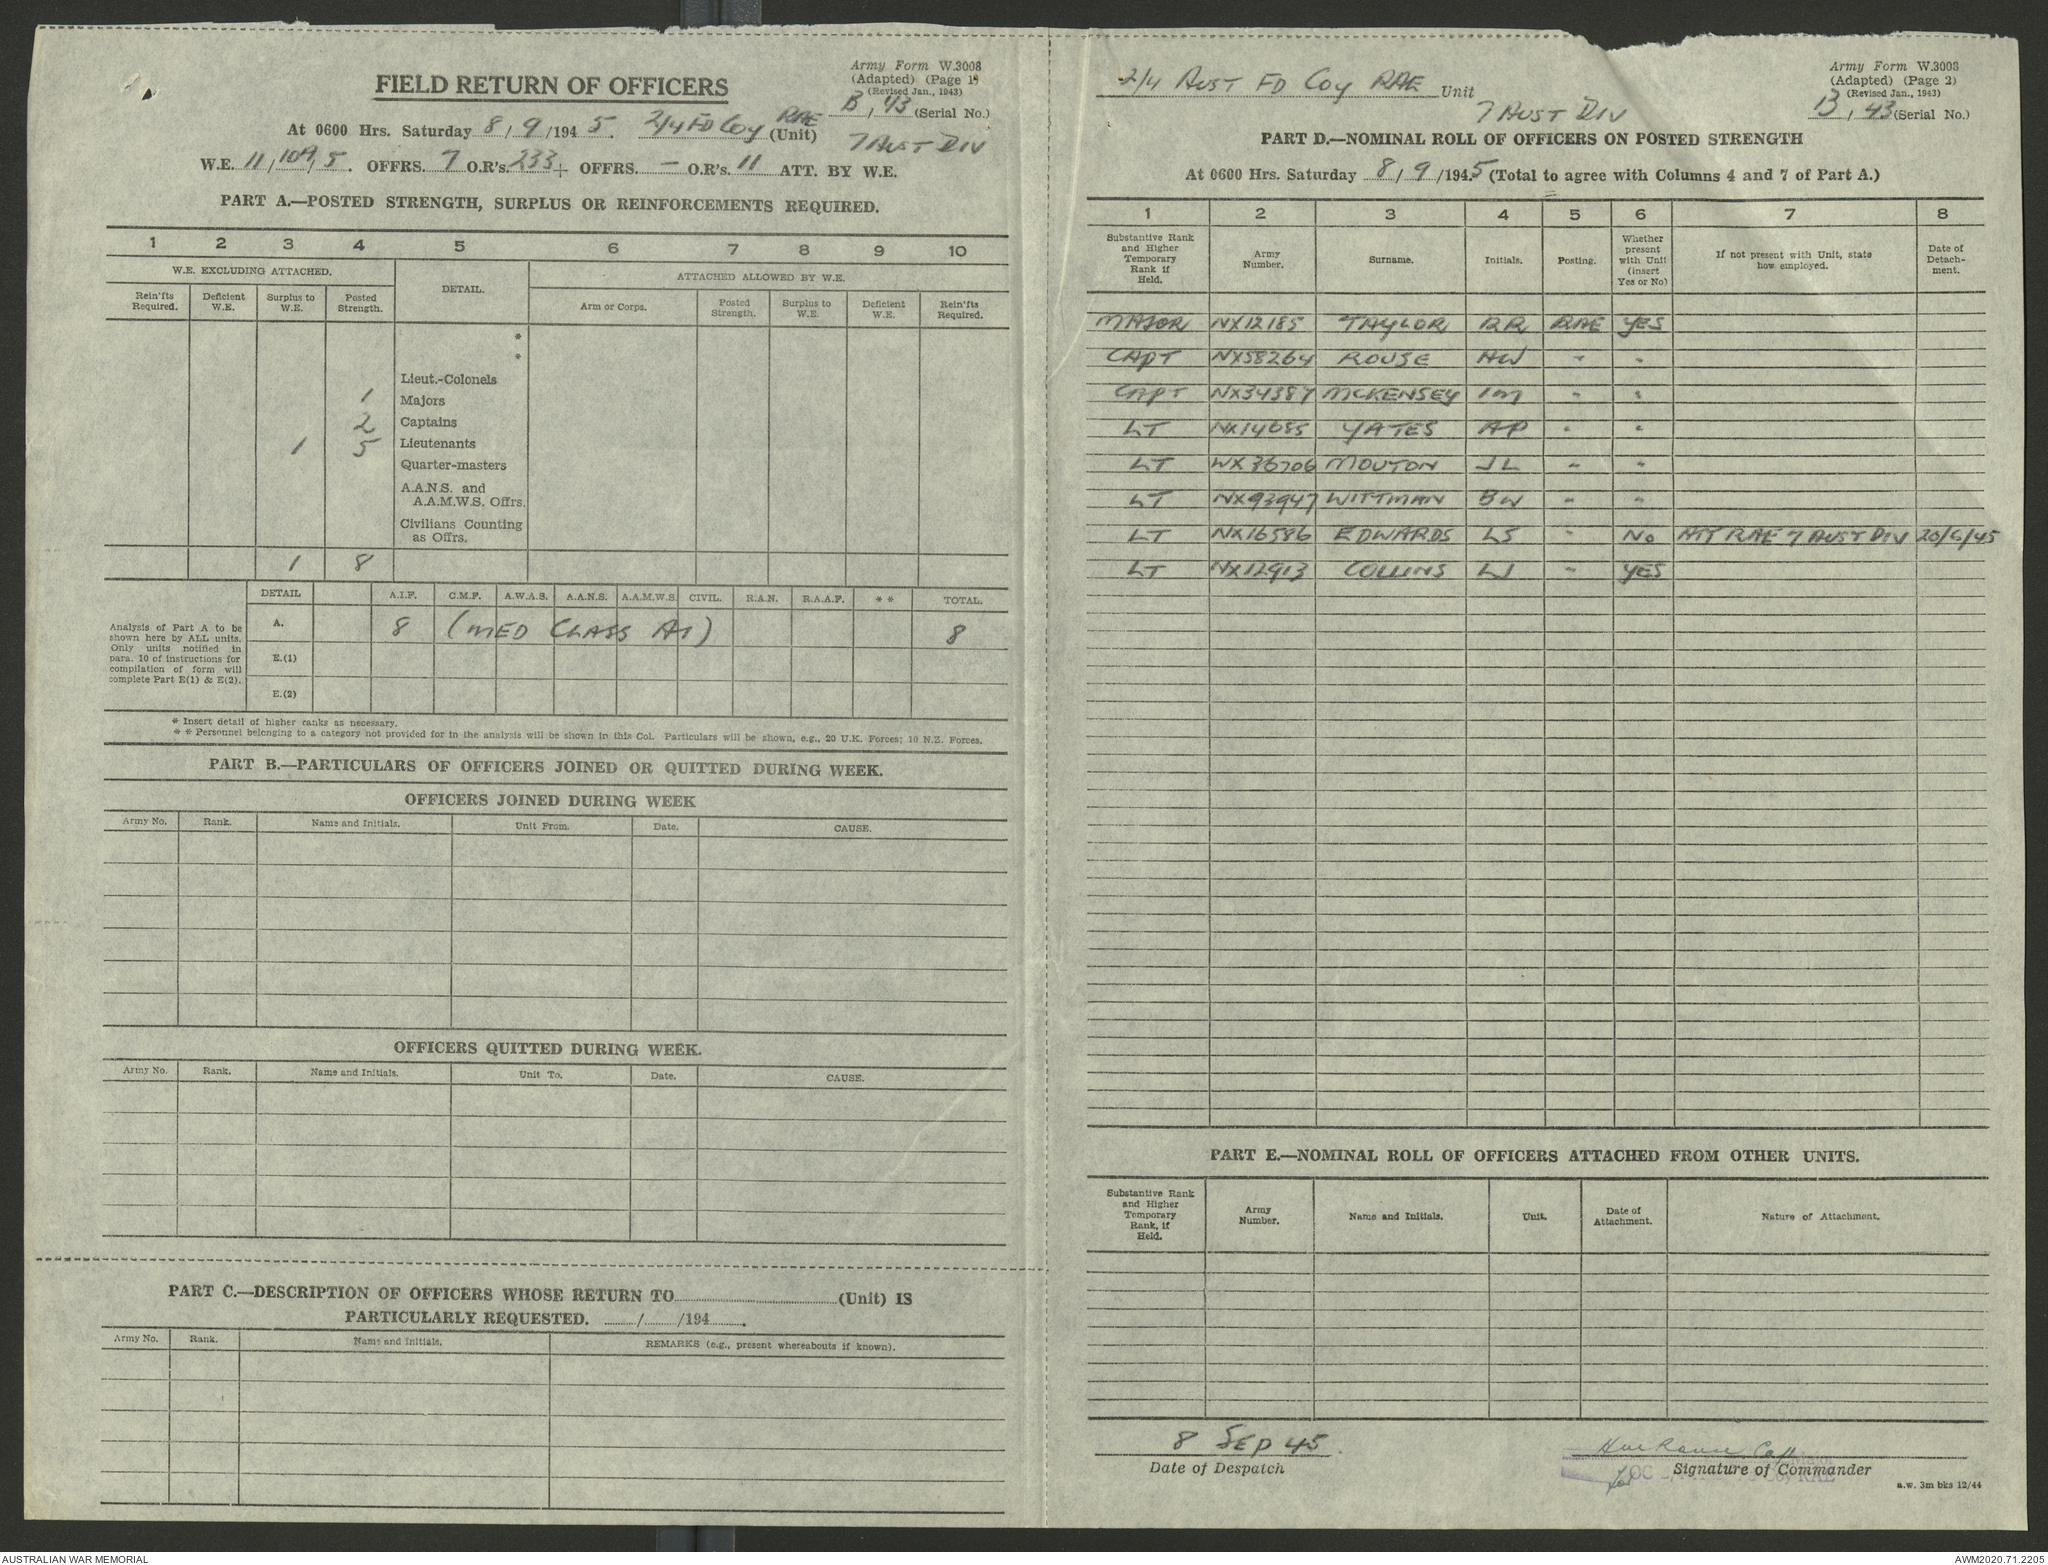 Army Form W.3008
(Adapted) (Page 1)
(Revised Jan., 1943)
B, 43 (Serial No.)
FIELD RETURN OF OFFICERS
At 0600 Hrs. Saturday 8/9/1945. 2/4 FD Coy RAE (Unit)
7 AUST DIV
W.E. 11/109/5. OFFRS. 7 O.R's. 233 + OFFRS. — O.R's. 11 ATT. BY W.E.
PART A.—POSTED STRENGTH, SURPLUS OR REINFORCEMENTS REQUIRED.
1 2 3 4 5 6 7 8 9 10
W.E. EXCLUDING ATTACHED. DETAIL. ATTACHED ALLOWED BY W.E.
Rein'fts Required. Deficient W.E. Surplus to W.E. Posted Strength. Arm or Corps. Posted Strength. Surplus to W.E. Deficient W.E. Rein'fts Required.
*
*
Lieut.-Colonels
1 Majors
2 Captains
1 5 Lieutenants
Quarter-masters
A.A.N.S. and
A.A.M.W.S. Offrs.
Civilians Counting
as Offrs.
1 8
DETAIL A.I.F. C.M.F. A.W.A.S. A.A.N.S. A.A.M.W.S. CIVIL. R.A.N. R.A.A.F. * * TOTAL.
Analysis of Part A to be
shown here by ALL units.
Only units notified in
para. 10 of instructions for
compilation of form will
complete Part E(1) & E(2).
A. 8 (MED CLASS A1) 8
E.(1)
E.(2)
* Insert detail of higher ranks as necessary.
* * Personnel belonging to a category not provided for in the analysis will be shown in this Col. Particulars will be shown, e.g., 20 U.K. Forces; 10 N.Z. Forces.
PART B.—PARTICULARS OF OFFICERS JOINED OR QUITTED DURING WEEK.
OFFICERS JOINED DURING WEEK
Army No. Rank. Name and Initials. Unit From. Date. CAUSE.
OFFICERS QUITTED DURING WEEK.
Army No. Rank. Name and Initials. Unit To. Date. CAUSE.
PART C.—DESCRIPTION OF OFFICERS WHOSE RETURN TO (Unit) IS
PARTICULARLY REQUESTED. / /194 .
Army No. Rank. Name and Initials. REMARKS (e.g., present whereabouts if known).
2/4 AUST FD Coy RAE Unit
7 AUST DIV
Army Form W.3008
(Adapted) (Page 2)
(Revised Jan., 1943)
B, 43 (Serial No.)
PART D.—NOMINAL ROLL OF OFFICERS ON POSTED STRENGTH
At 0600 Hrs. Saturday 8/9/1945 (Total to agree with Columns 4 and 7 of Part A.)
1 2 3 4 5 6 7 8
Substantive Rank and Higher Temporary Rank if Held. Army Number. Surname. Initials. Posting. Whether present with Unit (insert Yes or No) If not present with Unit, state how employed. Date of Detach-ment.
MAJOR NX12185 TAYLOR RR RAE YES
CAPT NX58264 ROUSE HW " "
CAPT NX34387 MCKENSEY IM " "
LT NX14085 YATES AP " "
LT WX36706 MOUTON JL " "
LT NX93947 WITTMAN BW " "
LT NX16586 EDWARDS LS " NO ATT RAE 7 AUST DIV 20/6/45
LT NX12913 COLLINS LJ " YES
PART E.—NOMINAL ROLL OF OFFICERS ATTACHED FROM OTHER UNITS.
Substantive Rank and Higher Temporary Rank, if Held. Army Number. Name and Initials. Unit. Date of Attachment. Nature of Attachment.
8 SEP 45.
Date of Despatch
HW Rouse Capt
for OC
Signature of Commander
a.w. 3m bks 12/44
AUSTRALIAN WAR MEMORIAL
AWM2020.71.2205